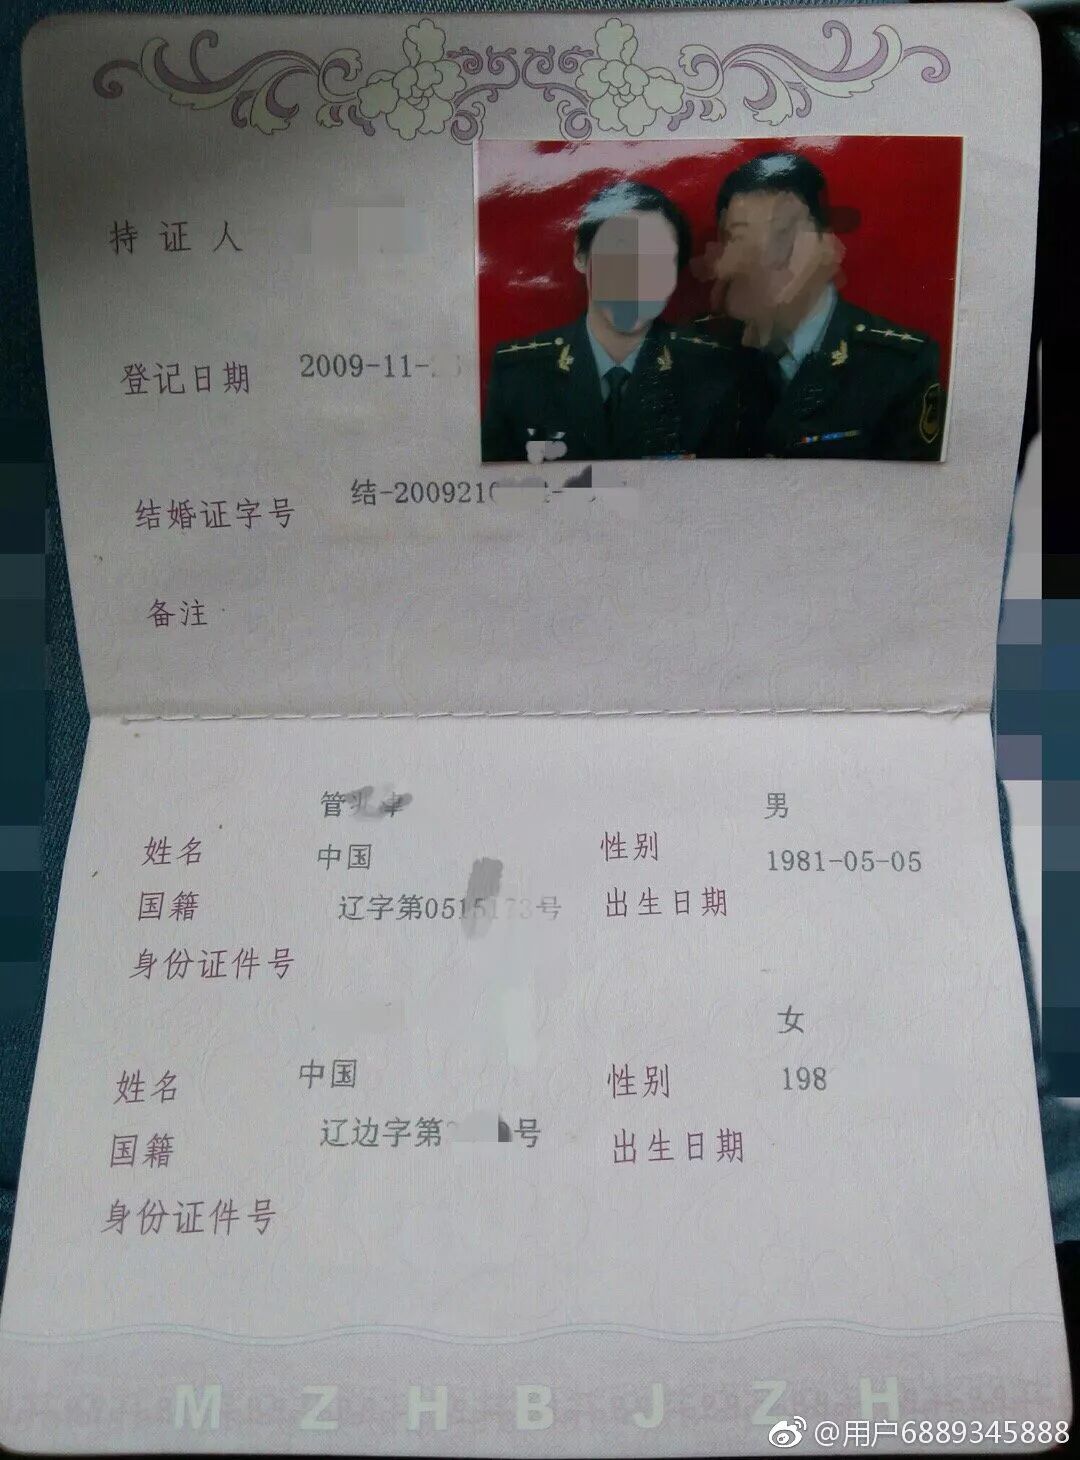 持证人
登记日期 2009-11-
结婚证字号 结-200921
备注
管
男
姓名
性别
中国
1981-05-05
国籍
出生日期
辽字第0515 号
身份证件号
女
姓名
性别
中国
198
国籍
出生日期
辽边字第 号
身份证件号
M Z H B J Z H
@用户6889345888